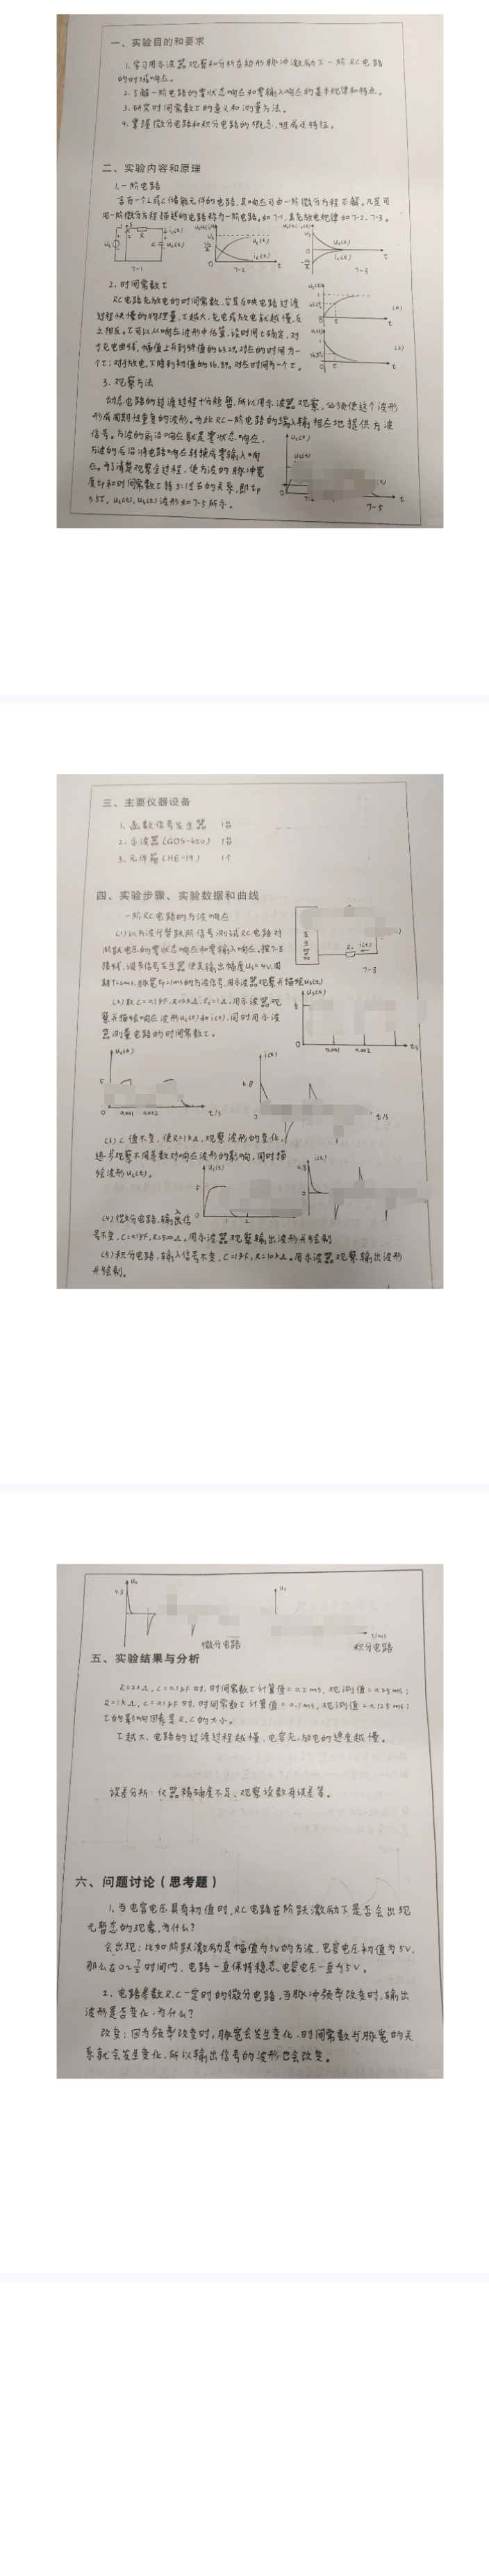 一、实验目的和要求
1. 学习用示波器观察和分析在矩形脉冲激励下一阶RC电路
的时域响应。
2. 了解一阶电路的零状态响应和零输入响应的基本规律和特点。
3. 研究时间常数τ的意义和测量方法。
4. 掌握微分电路和积分电路的概念、组成及特征。
二、实验内容和原理
1. 一阶电路
含有一个L或C储能元件的电路,其响应可由一阶微分方程求解,凡是可
用一阶微分方程描述的电路称为一阶电路。如7-1,其充放电规律如7-2、7-3。
7-1
7-2
7-3
2. 时间常数τ
RC电路充放电的时间常数,它是反映电路过渡
过程快慢的物理量,τ越大,充电或放电就越慢,反
之相反。τ可以从响应波形中估算,设时间t确定,对
于充电曲线,幅值上升到终值的63.2%对应的时间为一
个τ;对于放电,下降到初值的36.8%对应时间为一个τ。
(a)
(b)
3. 观察方法
动态电路的过渡过程十分短暂,所以用示波器观察,必须使这个波形
形成周期性重复的波形。为此RC一阶电路的输入端相应地提供方波
信号。方波的前沿响应就是零状态响应,
方波的后沿将电路响应转换成零输入响
应。为了清楚观察全过程,使方波的脉冲宽
度tp和时间常数τ符3:1左右的关系,即tp
≥5τ, us(t)、uc(t)波形如7-5所示。
7-5
三、主要仪器设备
1. 函数信号发生器 1台
2. 示波器(GOS-620) 1台
3. 元件箱(HE-19) 1个
四、实验步骤、实验数据和曲线
一阶RC电路的方波响应
(1)以方波代替跃阶信号测试RC电路对
阶跃电压的零状态响应和零输入响应。按7-8
接线,调节信号发生器使其输出幅度Us=4V,周
期T=2ms,脉宽tp=1ms的方波信号,用示波器观察并描绘us(t)
发生器
R₀ i(t)
7-8
(2)取C=0.1μF,R=2kΩ,R₀=1Ω,用示波器观
察并描绘响应波形uc(t)和i(t),同时用示波
器测量电路的时间常数τ。
us(t)
5
0 0.001 0.002 t/s
uc(t)
5
0 0.001 0.002 t/s
i(t)
4.8
0 t/s
(3) C值不变,使R=1kΩ,观察波形的变化,
进步观察不同参数对响应波形的影响,同时描
绘波形uc(t)。
(4)微分电路,输入信
号不变,C=0.1μF,R=500Ω。用示波器观察输出波形并绘制
(5)积分电路,输入信号不变,C=1μF,R=10kΩ。用示波器观察输出波形
并绘制。
4.8
微分电路
t/ms
积分电路
五、实验结果与分析
R=2kΩ,C=0.1μF时,时间常数τ计算值=0.2ms,观测值=0.25ms;
R=1kΩ,C=0.1μF时,时间常数τ计算值=0.1ms,观测值=0.125ms;
τ的影响因素是R、C的大小。
τ越大,电路的过渡过程越慢,电容充、放电的速度越慢。
误差分析:仪器精确度不足、观察读数有误差等。
六、问题讨论(思考题)
1. 当电容电压具有初值时,RC电路在阶跃激励下是否会出现
无暂态的现象,为什么?
会出现;比如阶跃激励是幅值为5V的方波,电容电压初值为5V,
那么在0~T/2时间内,电路一直保持稳态,电容电压一直为5V。
2. 电路参数R、C一定时的微分电路,当脉冲频率改变时,输出
波形是否变化,为什么?
改变;因为频率改变时,脉宽会发生变化,时间常数与脉宽的关
系就会发生变化,所以输出信号的波形也会改变。